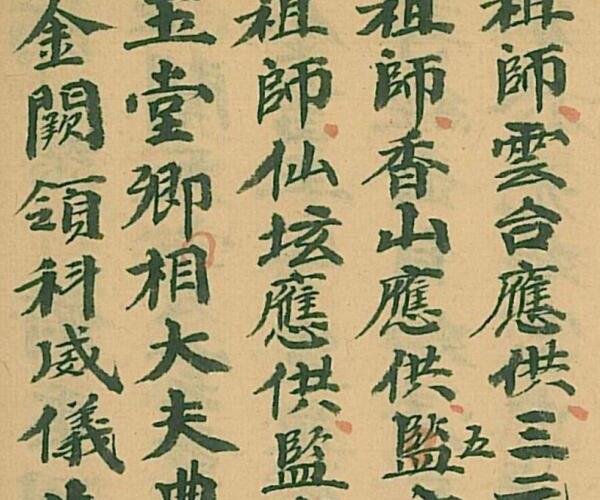 祖師雲台應供三元
祖師香山應供監五
祖師仙坛應供監
玉堂卿相大夫典
金闕領科威儀